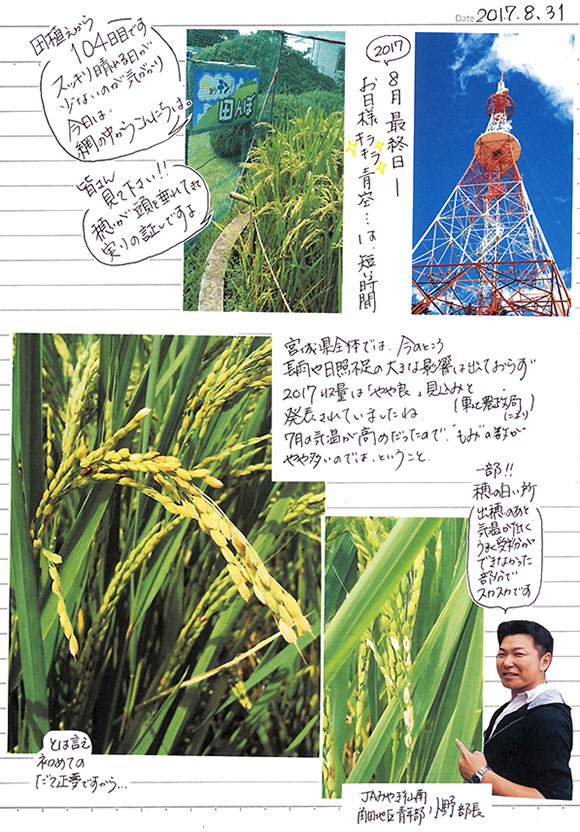 Date 2017.8.31
田植えから
104日目です
スッキリ晴れる日が
少ないのが気がかり
今日は、
網の中からこんにちは。
皆さん
見て下さい!!
穂が頭を垂れてきた
実りの証しですよ
田んぼ
2017
8月最終日ー
お日様キラキラ青空…は、短い時間
宮城県全体では、今のところ
長雨や日照不足の大きな影響は出ておらず
2017収量は「やや良」見込みと
発表されていましたね。
(東北農政局により)
7月の気温が高めだったので、"もみ"の数が
やや多いのでは、ということ。
一部!!
穂の白い所
出穂のあと
気温が低く
うまく受粉が
できなかった
部分で
スカスカです
とは言え
初めての
だて正夢ですから…
JAみやぎ仙南
角田地区青年部 小野部長